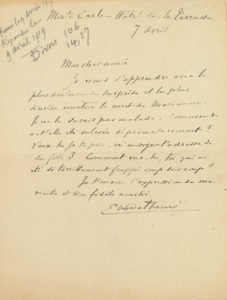 Monte Carlo - Hôtel de la Terrasse
7 avril
9 avril 1919
Divers 106
14,17
Mon cher ami
Je viens d'apprendre avec la
plus douloureuse surprise et la plus
sincère la mort de Marianne.
Je ne la savais pas malade. Comment
a-t-elle été enlevée si prématurément ?
Veux-tu je te prie, m'envoyer l'adresse de
sa fille ? Comment vas-tu, toi qui as
été si cruellement frappé coup sur coup ?
Je t'envoie l'expression de ma
vieille et bien fidèle amitié
Gabriel Fauré